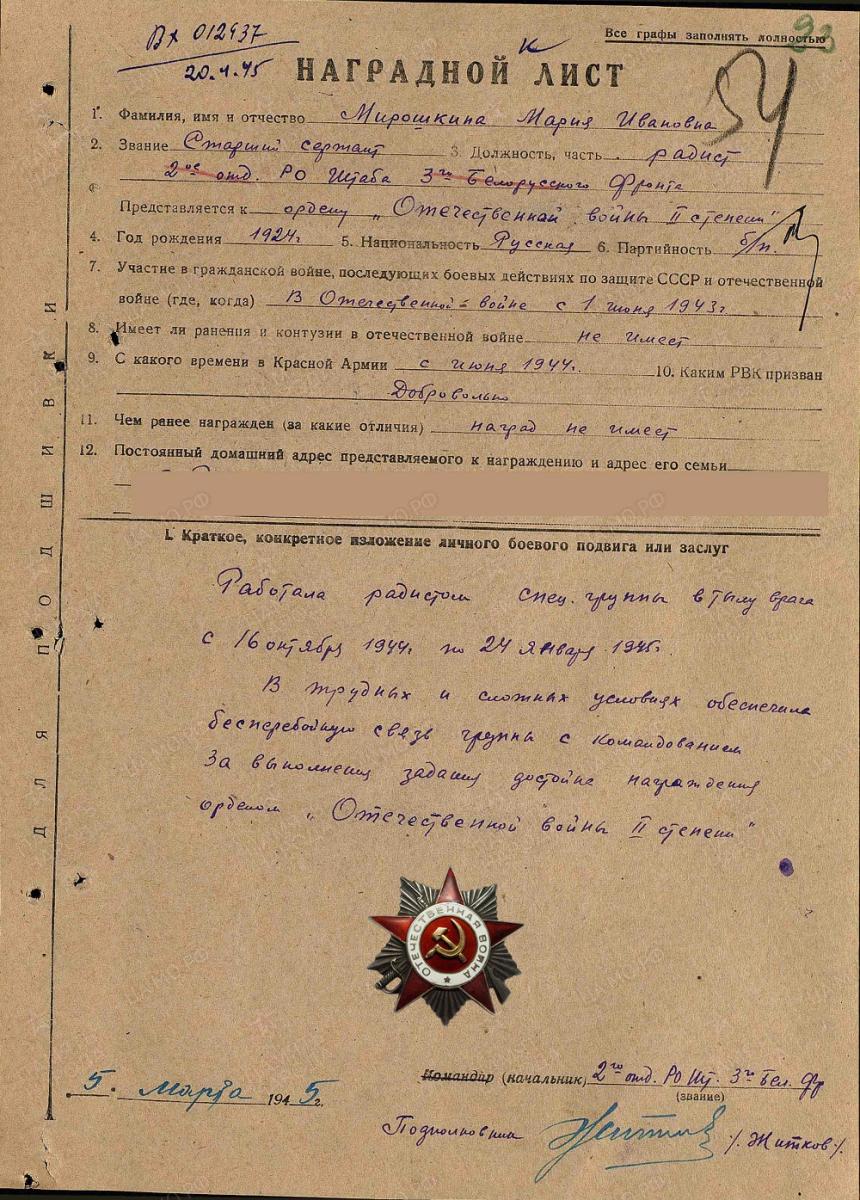 Вх 012437
20.4.45
Все графы заполнять полностью
93
54
НАГРАДНОЙ ЛИСТ
1. Фамилия, имя и отчество Мирошкина Мария Ивановна
2. Звание Старший сержант 3. Должность, часть радист
2ое отд. РО Штаба 3го Белорусского Фронта
Представляется к ордену „Отечественной войны II степени"
4. Год рождения 1924г. 5. Национальность Русская 6. Партийность б/п.
7. Участие в гражданской войне, последующих боевых действиях по защите СССР и отечественной
войне (где, когда) В Отечественной войне с 1 июня 1943г.
8. Имеет ли ранения и контузии в отечественной войне не имеет
9. С какого времени в Красной Армии с июня 1944г. 10. Каким РВК призван
Добровольно
11. Чем ранее награжден (за какие отличия) наград не имеет
12. Постоянный домашний адрес представляемого к награждению и адрес его семьи
I. Краткое, конкретное изложение личного боевого подвига или заслуг
Работала радистом спец. группы в тылу врага
с 16 октября 1944г. по 24 января 1945г.
В трудных и сложных условиях обеспечила
бесперебойную связь группы с командованием
За выполнения задания достойна награждения
орденом „Отечественной войны II степени"
ОТЕЧЕСТВЕННАЯ ВОЙНА
5. марта 1945г.
Командир (начальник) 2го отд. РО Шт. 3го Бел. Фр
(звание)
Подполковник /Житков/.
ДЛЯ ПОДШИВКИ